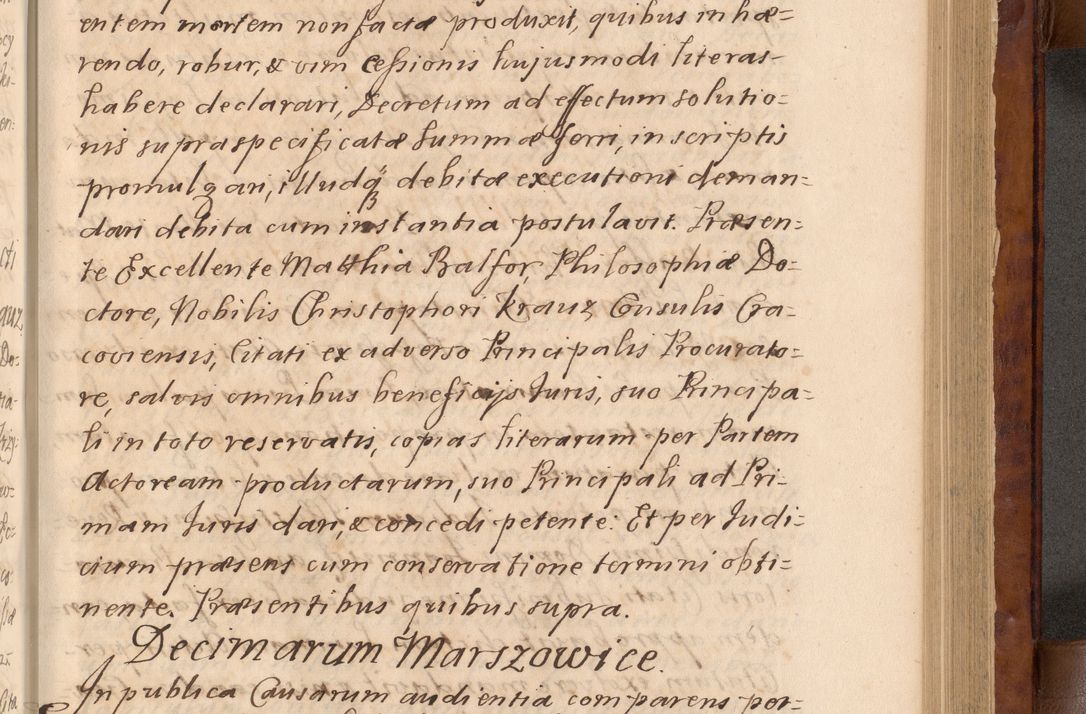 entem mortem non facta produxit, quibus inhæ=
rendo, robur, & vim cessionis hujusmodi literas
habere declarari, Decretum ad effectum solutio=
nis supraspecificatæ Summæ ferri, in scriptis
promulgari, illudq́ debitæ executioni deman=
dari debita cum instantia postulavit. Præsen=
te Excellente Matthia Balfor, Philosophiæ Do=
ctore, Nobilis Christophori Krauz Consulis Cra=
coviensis, Citati ex adverso Principalis Procurato=
re, salvis omnibus beneficijs Juris, suo Principa=
li in toto reservatis, copias literarum per Partem
Actoream productarum, suo Principali ad Pri=
mam Juris dari, & concedi petente. Et per Judi=
cium præsens cum conservatione termini obti=
nente. Præsentibus quibus supra.
Decimarum Marszowice.
In publica Causarum audientia comparens por=